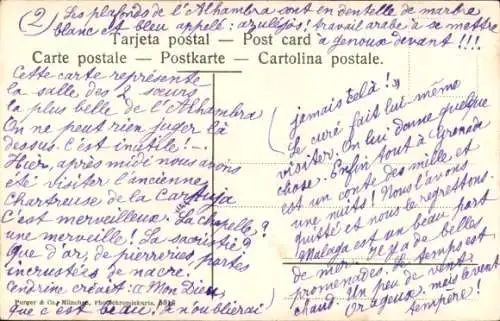 (2) Les plafonds de l'Alhambra sont en dentelle de marbre
blanc et bleu appelé: azulejos! travail arabe à se mettre
à genoux devant!!!
Tarjeta postal — Post card
Carte postale — Postkarte — Cartolina postale.
Cette carte représente
la salle des 2 sœurs
la plus belle de l'Alhambra
On ne peut rien juger là
dessus. C'est inutile! -
Hier, après midi nous avons
été visiter l'ancienne
Chartreuse de la Cartuja
C'est merveilleux. La chapelle?
une merveille! La sacristie?
Que d'or, de pierreries, portes
incrustées de nacre.
Cendrine créait: "Mon Dieu,
que c'est beau. Je n'oublierai
jamais cela!"
Le curé fait lui-même
visiter. On lui donne quelque
chose. Enfin tout à Grenade
est un conte des mille et
une nuits! Nous l'avons
quitté et nous le regrettons.
Malaga est un beau port
de mer. Il y a de belles
promenades. Le temps est
chaud. Un peu de vent
orageux, mais le vent
tempère!
Purger & Co., München, Photochromiekarte,